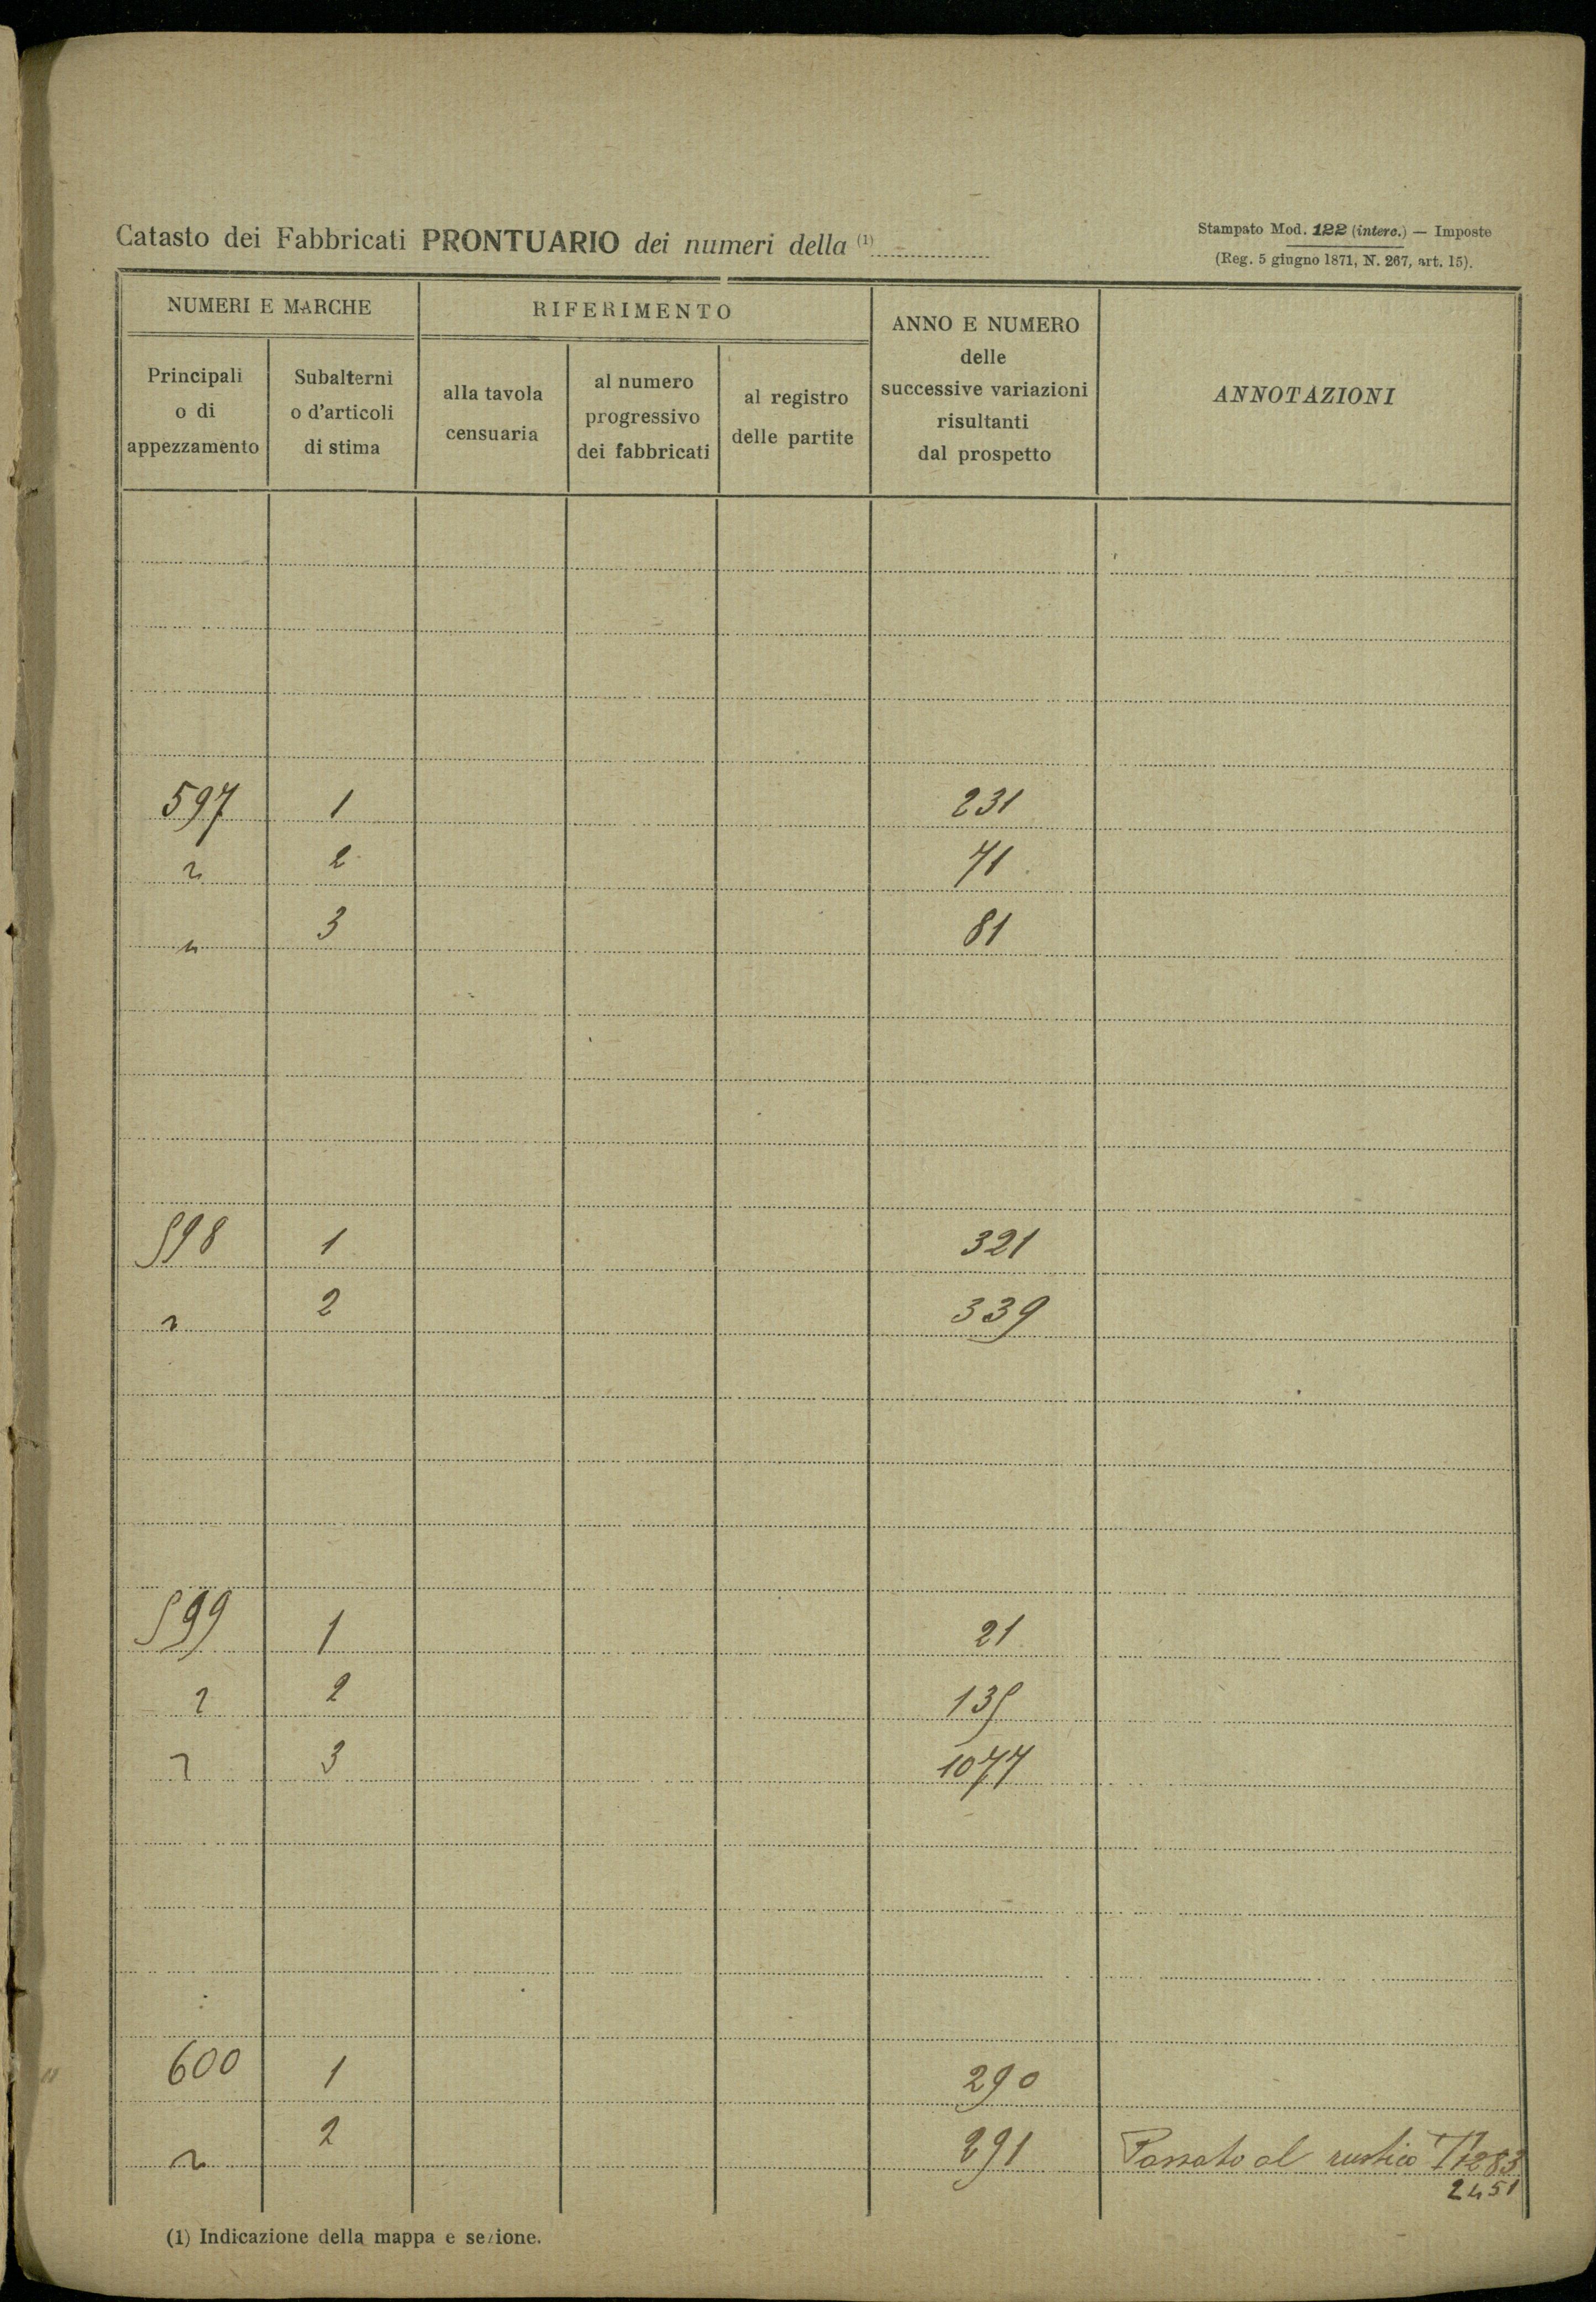 Catasto dei Fabbricati PRONTUARIO dei numeri della (1)
Stampato Mod. 122 (interc.) — Imposte
(Reg. 5 giugno 1871, N. 267, art. 15).
NUMERI E MARCHE
RIFERIMENTO
ANNO E NUMERO
delle
successive variazioni
risultanti
dal prospetto
ANNOTAZIONI
Principali
o di
appezzamento
Subalterni
o d'articoli
di stima
alla tavola
censuaria
al numero
progressivo
dei fabbricati
al registro
delle partite
597 1 231
" 2 71
" 3 81
598 1 321
" 2 339
599 1 21
" 2 135
" 3 1077
600 1 290
" 2 291 Passato al rustico
2451
(1) Indicazione della mappa e sezione.